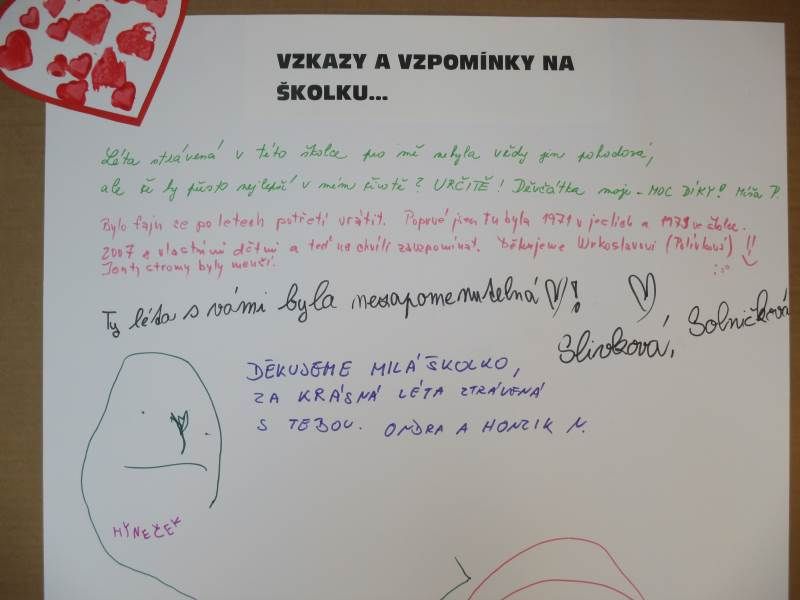 VZKAZY A VZPOMÍNKY NA
ŠKOLKU...
Léta strávená v této školce pro mě nebyla vždy jen pohodová,
ale že by přesto nejlepší v mém životě? URČITĚ! Děvčátka moje - MOC DÍKY! Míša P.
Bylo fajn se po letech potřetí vrátit. Poprvé jsem tu byla 1971 v jeslích a 1973 ve školce.
2007 s vlastními dětmi a teď na chvíli zavzpomínat. Děkujeme (Polívková) !!
Jen ty stromy byly menší.
Ty léta s vámi byla nezapomenutelná!
Slivková, Solničková
DĚKUJEME MILÁ ŠKOLKO,
ZA KRÁSNÁ LÉTA ZTRÁVENÁ
S TEBOU. ONDRA A HONZIK N.
HÝNEČEK